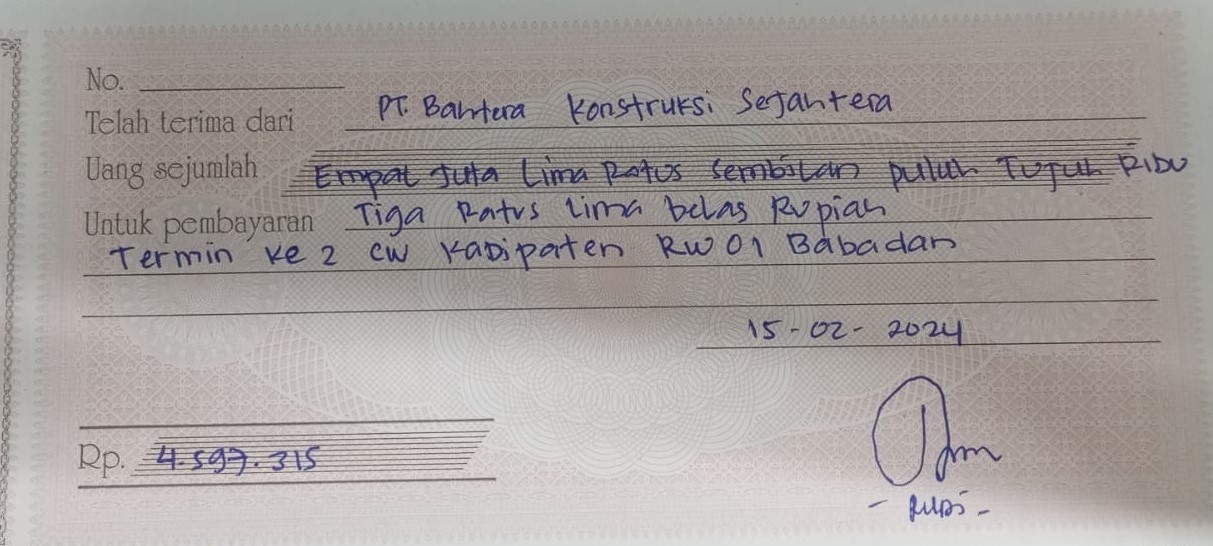 No.
Telah terima dari PT. Bahtera Konstruksi Sejahtera
Uang sejumlah Empat Juta Lima Ratus Sembilan puluh Tujuh Ribu
Untuk pembayaran Tiga Ratus Lima belas Rupiah
Termin ke 2 CW Kadipaten RW 01 Babadan
15-02-2024
Rp. 4.597.315